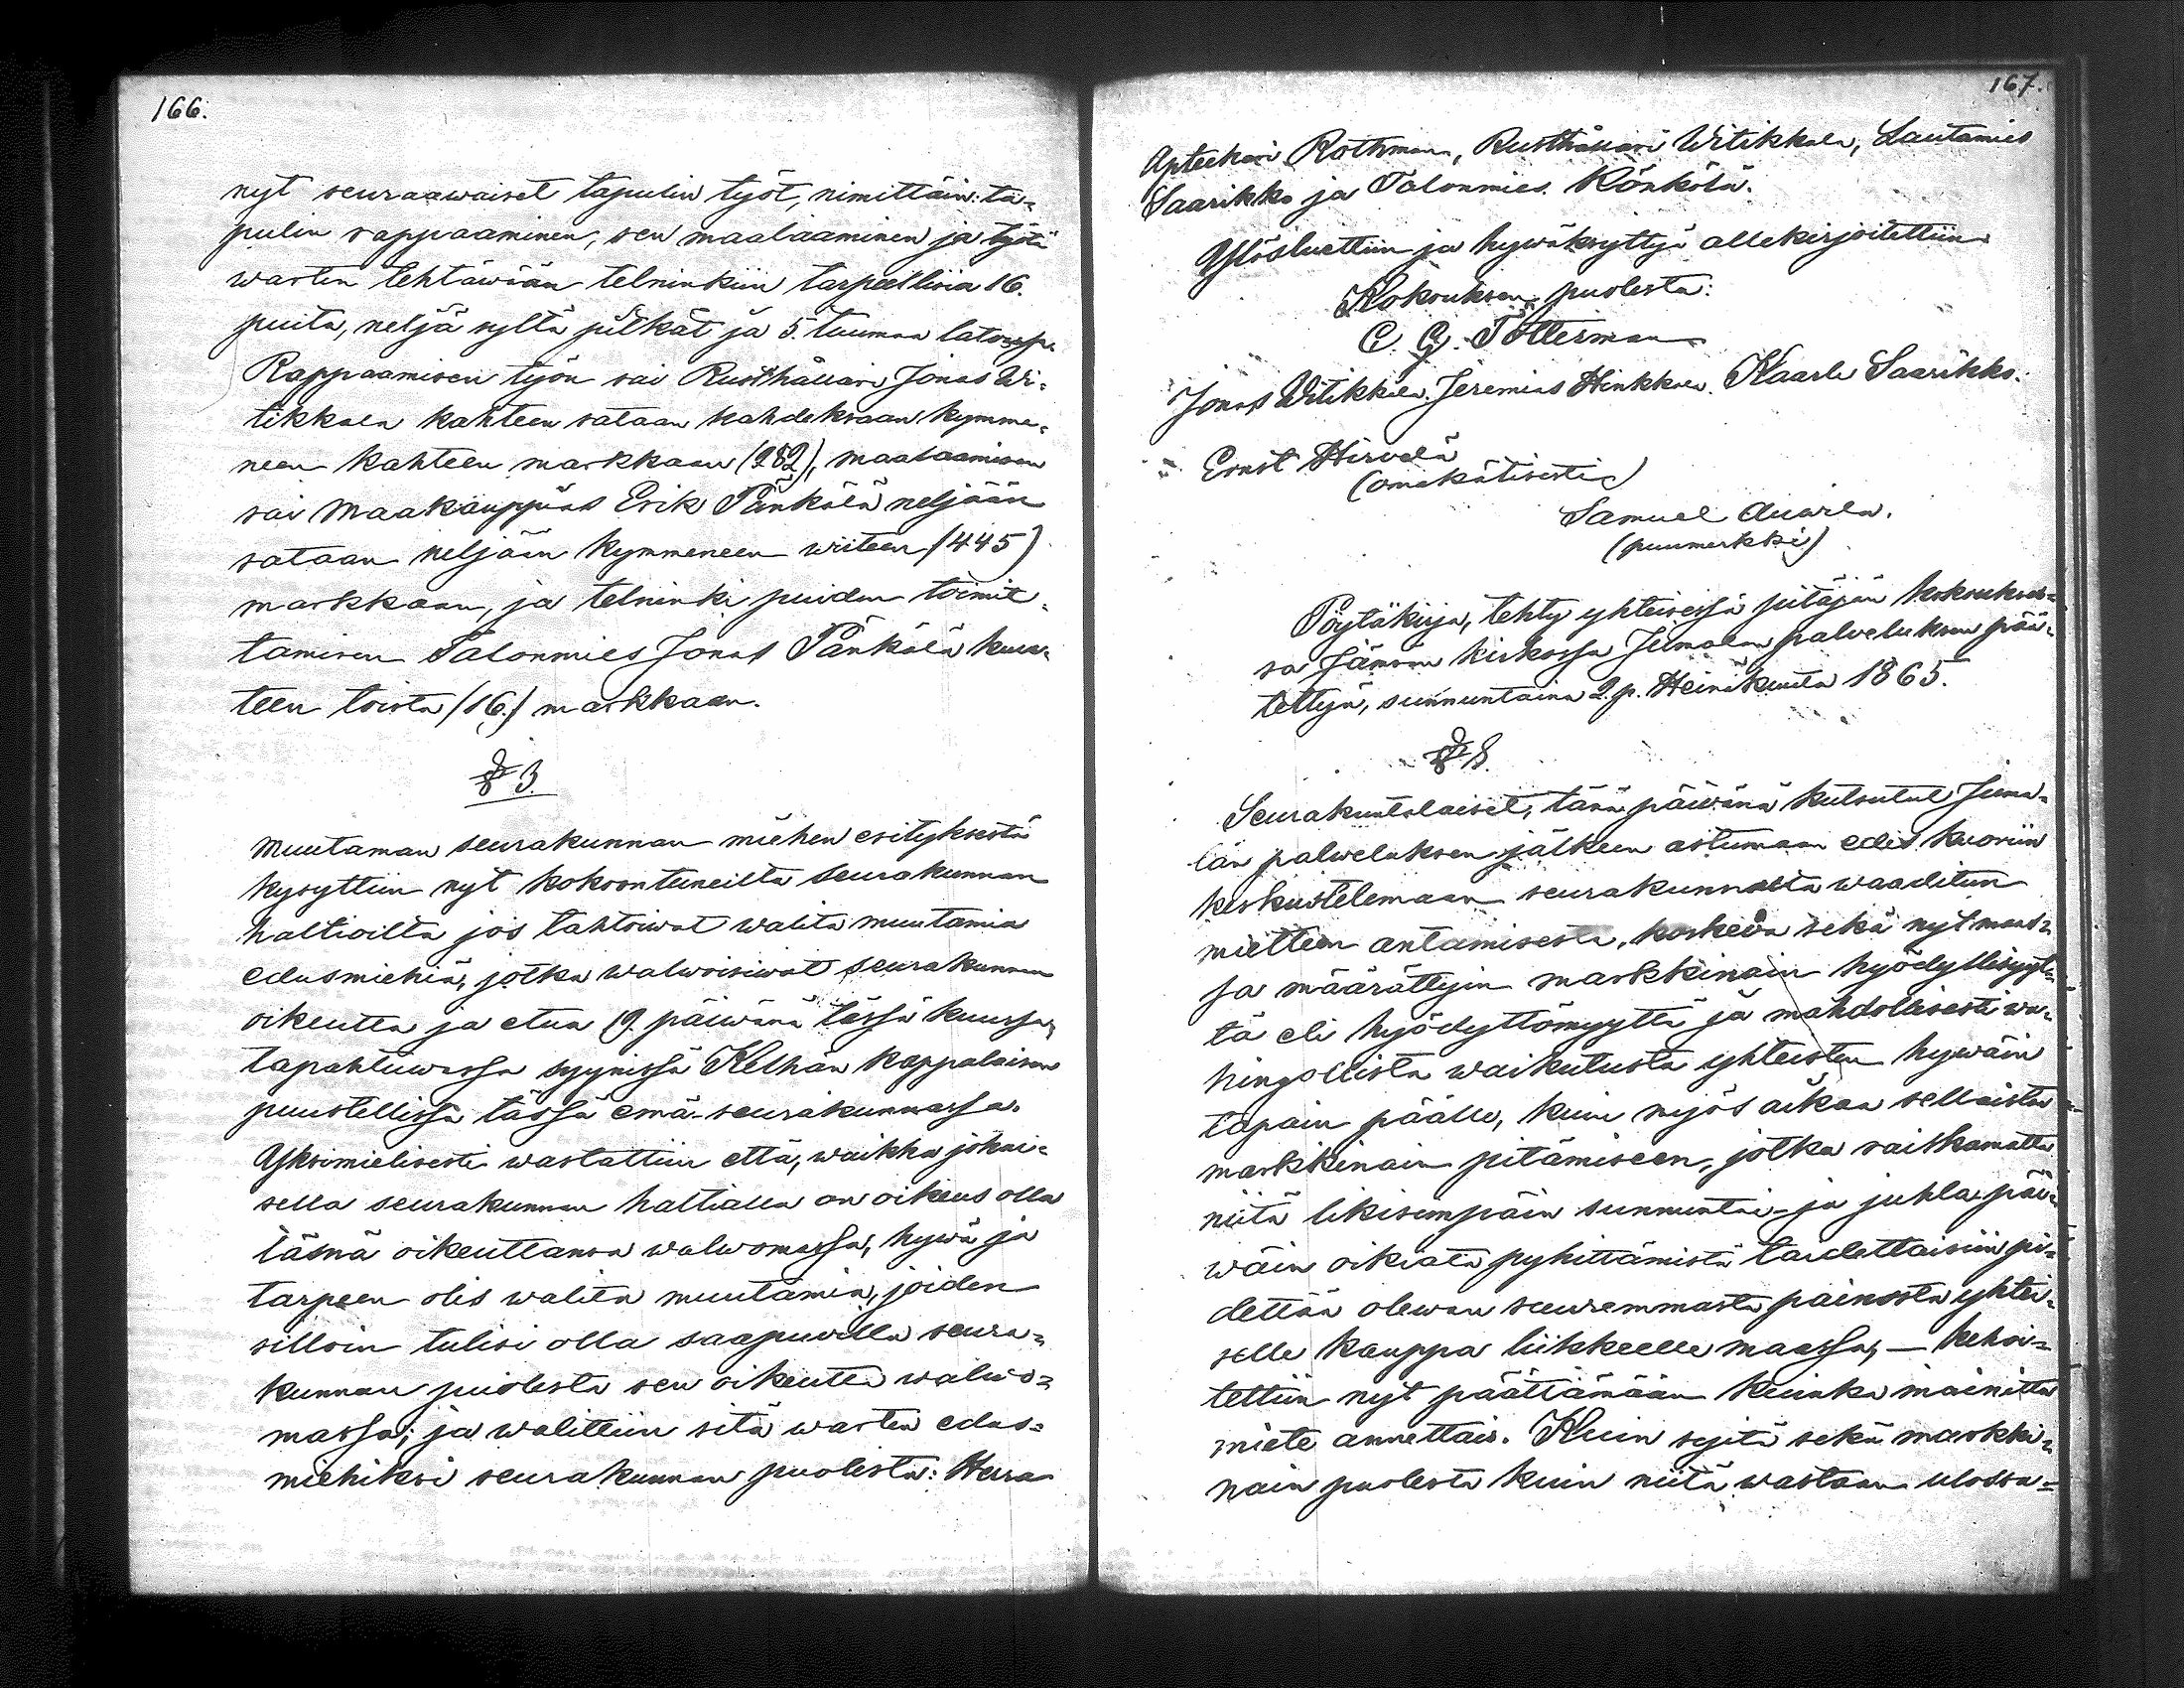 166.
nyt seuraawaiset tapulin työt, nimittäin: ta=
pulin rappaaminen, sen maalaaminen ja työtä
warten tehtäwään telninkiin tarpeellisia 16.
puita, neljä syltä pitkät ja 5. tuumaa
Rappaamisen työn sai Rusthållari Jonas Wi=
tikkala kahteen sataan kahdeksaan kymme=
neen kahteen markkaan (282), maalaamisen
sai Maakauppias Erik Pänkälä neljään
sataan neljään kymmeneen wiiteen (445)
markkaan, ja telninki puiden toimit=
tamisen Talonmies Jonas Pänkälä kuu=
teen toista (16.) markkaan.
§ 3.
Muutaman seurakunnan miehen esityksestä
kysyttiin nyt kokoontuneilta seurakunnan
haltioilta jos tahtoiwat walita muutamia
edusmiehiä, jotka walwoisiwat seurakunnan
oikeutta ja etua 19. päiwänä tässä kuussa,
tapahtuwassa syynissä Kelhän kappalaisen
puustellissa tässä emä-seurakunnassa.
Yksimielisesti wastattiin että, waikka jokai=
sella seurakunnan haltialla on oikeus olla
läsnä oikeuttansa walwomassa, hywä ja
tarpeen olis walita muutamia, joiden
silloin tulisi olla saapuwilla seura=
kunnan puolesta sen oikeutta walwo=
massa; ja walittiin sitä warten edus=
miehiksi seurakunnan puolesta: Herra
167.
Apteekari Rothman, Rusthållari Witikkala, Lautamies
Saarikko ja Talonmies Könkölä.
Ylösluettiin ja hywäksyttyä allekirjoitettiin.
Kokouksen puolesta:
C. G. Tötterman
Jonas Witikkala. Jeremias Henkkala. Kaarle Saarikko.
Ernst Hirvelä
(omakätisesti)
Samuel
(puumerkki)
Pöytäkirja, tehty yhteisessä pitäjän kokoukses=
sa Jämsän kirkossa Jumalan palveluksen pää=
tettyä, sunnuntaina 2. p. Heinäkuuta 1865.
§
Seurakuntalaiset, tänä päiwänä kutsutut Juma=
lan palweluksen jälkeen astumaan edes kuoriin
keskustelemaan seurakunnalta waaditun
mietteen antamisesta, koskewa sekä nyt maas=
sa määrättyin markkinain hyödyllisyyt=
tä eli hyödyttömyyttä ja mahdollisesti wa=
hingollista waikutusta yhteisten hywäin
tapain päälle, kuin myös aikaa sellaisten
markkinain pitämiseen, jotka raiskamatta
niitä likisimpäin sunnuntai- ja juhla-päi=
wäin oikiata pyhittämistä taidettaisiin pi=
dettää olewan suuremmasta painosta yhtei=
selle kauppa liikkeelle maassa, — kehoi=
tettiin nyt päättämään kuinka mainittu
miete annettais. Kuin syitä sekä markki=
nain puolesta kuin niitä wastaan ulossa=